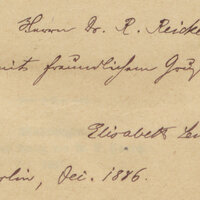 Herrn Dr. R. Reicke
mit freundlichem Gruß
Elisabeth
Berlin, Dec. 1886.